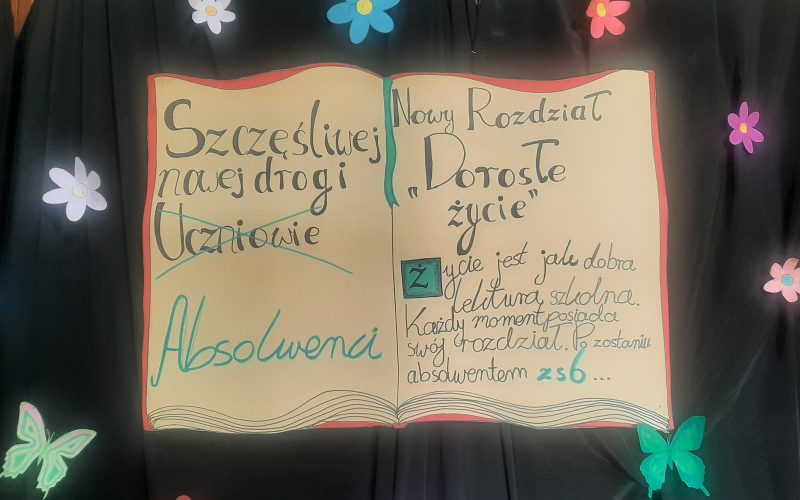 Szczęśliwej
nowej drogi
Uczniowie
Absolwenci
Nowy Rozdział
„Dorosłe
życie”
Życie jest jak dobra
lektura szkolna.
Każdy moment posiada
swój rozdział. Po zostaniu
absolwentem zs6...